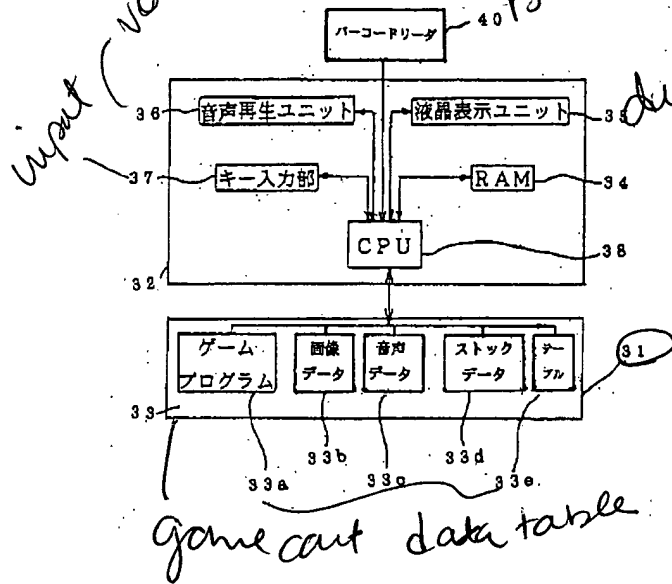 バーコードリーダ
40
36
音声再生ユニット
液晶表示ユニット
35
input
37
キー入力部
RAM
34
CPU
38
32
ゲーム
プログラム
画像
データ
音声
データ
ストック
データ
テー
ブル
31
33
33a
33b
33c
33d
33e
game cart data table